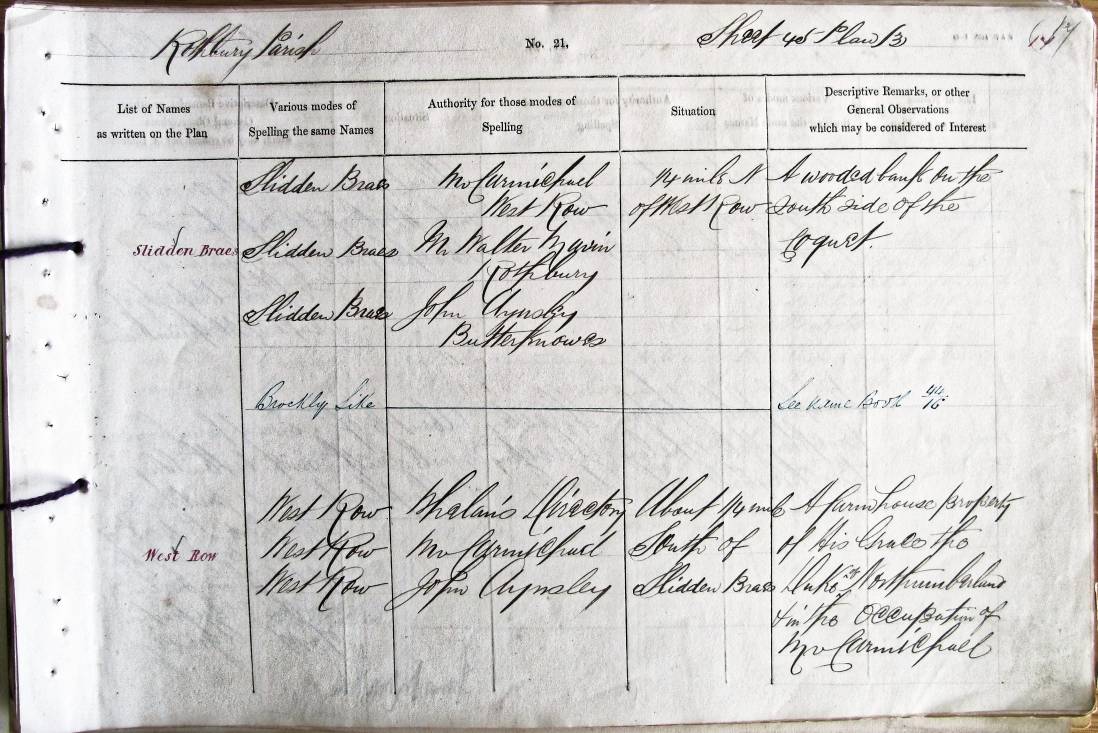 Rothbury Parish No. 21. Sheet 45 Plan 13
List of Names
as written on the Plan
Various modes of
Spelling the same Names
Authority for those modes of
Spelling
Situation
Descriptive Remarks, or other
General Observations
which may be considered of Interest
Slidden Braes
Slidden Braes
Slidden Braes
Slidden Braes
Mr Carmichael
West Row
Mr Walter
Rothbury
John Aynsley
Butterknowes
1/4 mile N
of West Row
A wooded bank on the
South side of the
Coquet.
Brockly Sike
See Name Book 44/16
West Row
West Row
West Row
West Row
Whelan's Directory
Mr Carmichael
John Aynsley
About 1/4 mile
South of
Slidden Braes
A farmhouse property
of His Grace the
Duke of Northumberland
& in the Occupation of
Mr Carmichael